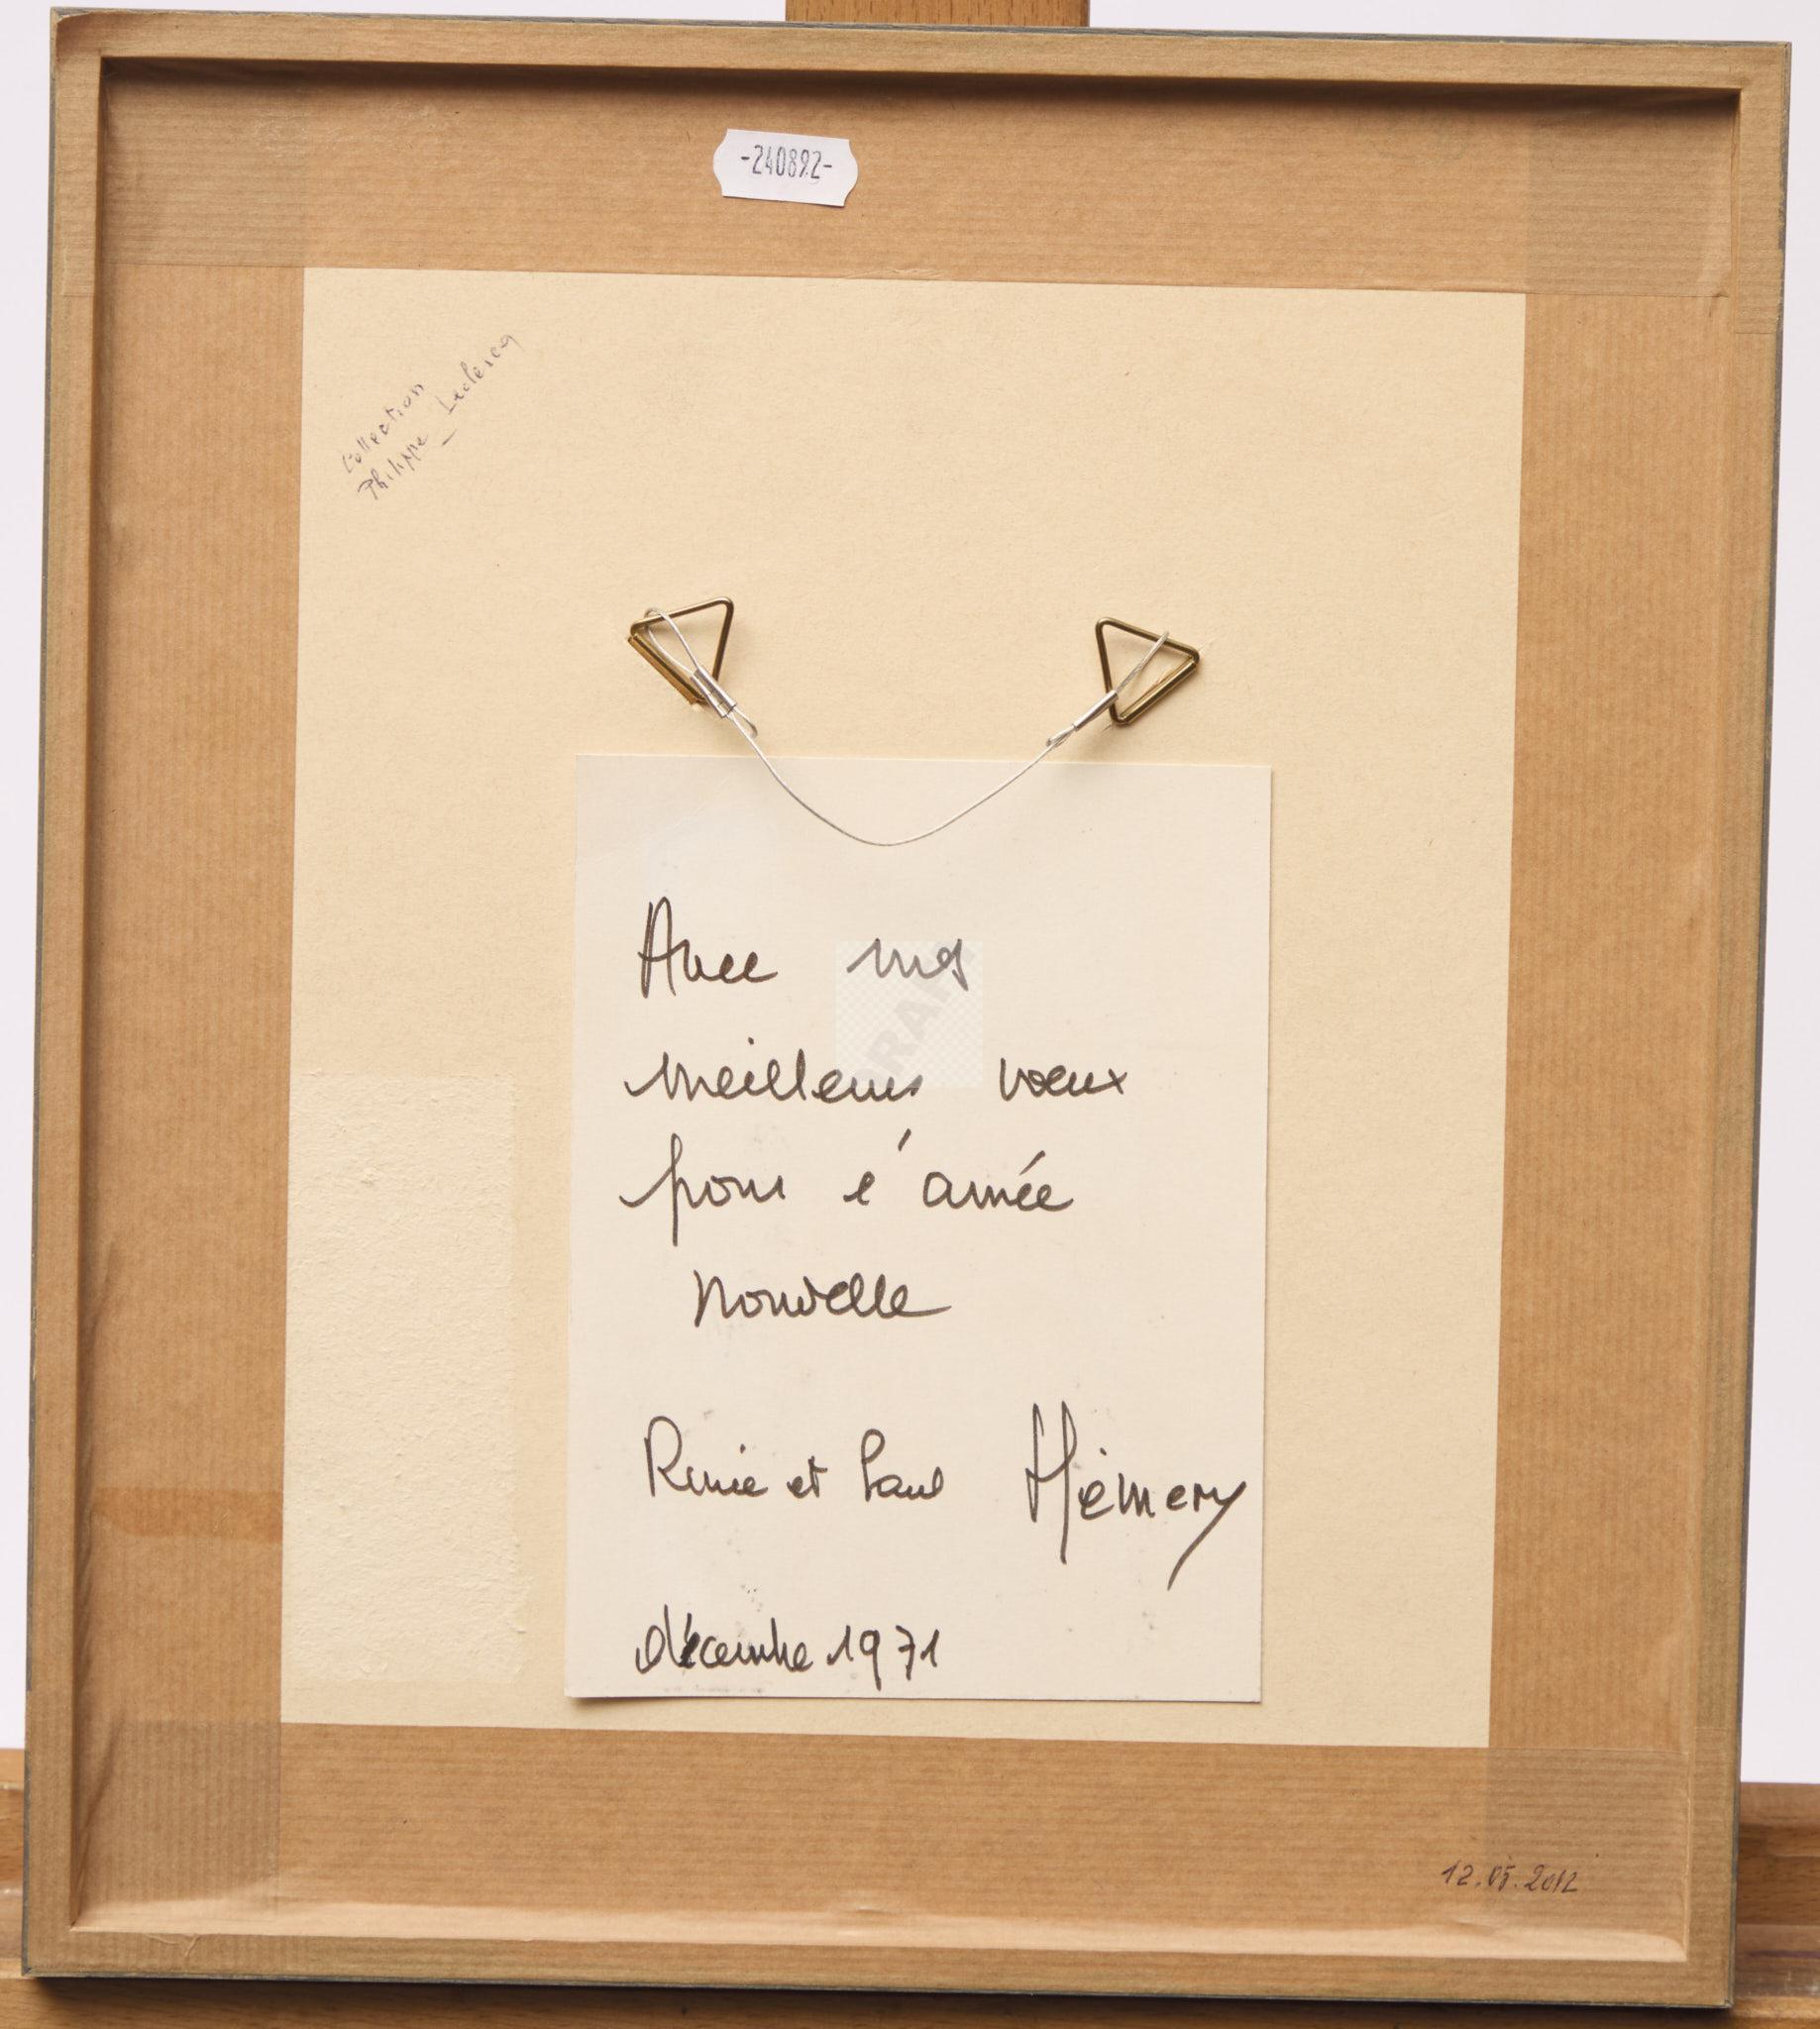 -240892-
Collection
Philippe Leclercq
Avec nos
meilleurs vœux
pour l'année
nouvelle
Renée et Paul Hémery
décembre 1971
12.05.2012